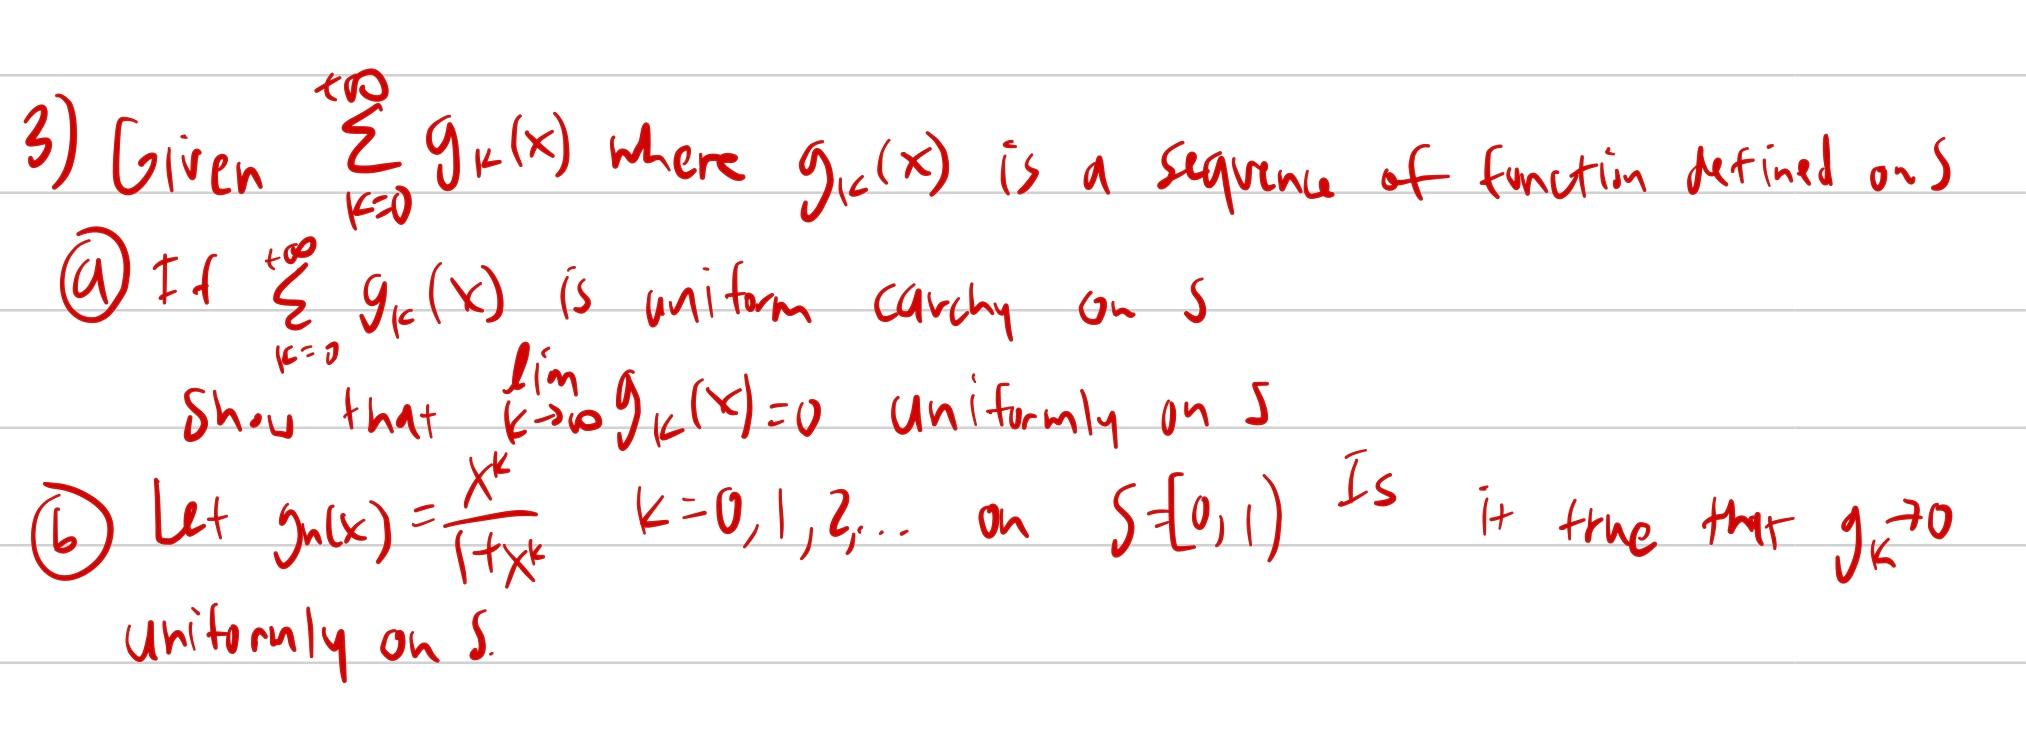 3) Given \sum_{k=0}^{+\infty} g_k(x) where g_k(x) is a sequence of function defined on S
(a) If \sum_{k=0}^{+\infty} g_k(x) is uniform cauchy on S
show that \lim_{k→∞} g_k(x)=0 uniformly on S
(b) Let g_n(x) = \frac{x^k}{1+x^k} k=0,1,2,... on S=[0,1) Is it true that g_k→0
uniformly on S.